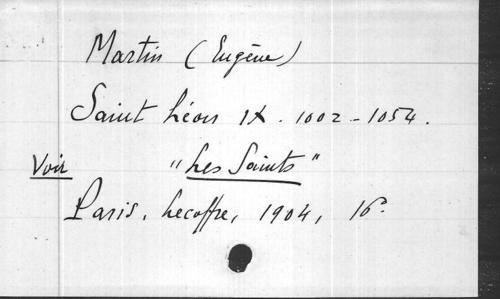 Martin (Eugène)
Saint Léon IX. 1002-1054.
Voir "Les Saints"
Paris, Lecoffre, 1904, 16°.